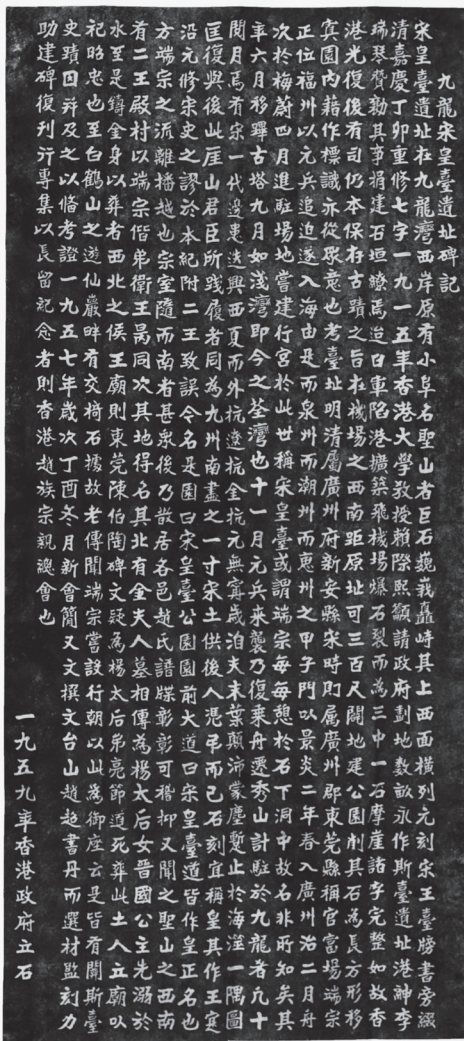 九龍宋皇臺遺址碑記
宋皇臺遺址在九龍灣西岸原有小阜名聖山者巨石巍峩矗峙其上西面橫列元刻宋王臺牓書旁綴
清嘉慶丁卯重修七字一九一五年香港大學敎授賴際熙籲請政府劃地數畝永作斯臺遺址港紳李
瑞琴贊勷其事捐建石垣繚焉迨日軍陷港擴築飛機場爆石裂而為三中一石摩崖諸字完整如故香
港光復後有司仍本保存古蹟之旨在機場之西南距原址可三百尺闢地建公園削其石為長方形移
寘園內藉作標識亦從眾意也考臺址明清屬廣州府新安縣宋時則屬廣州郡東莞縣稱官富場端宗
正位福州以元兵追迫遂入海由是而泉州而潮州而惠州之甲子門以景炎二年春入廣州治二月舟
次於梅蔚四月進駐場地嘗建行宮於此世稱宋皇臺或謂端宗每每憩於石下洞中故名非所知矣其
年六月移蹕古塔九月如淺灣即今之荃灣也十一月元兵來襲乃復乘舟遷秀山計駐於九龍者凡十
閱月焉有宋一代邊患迭興西夏而外抗遼抗金抗元無寗歲洎夫末葉顛沛蒙塵暫止於海澨一隅圖
匡復興後此厓山君臣所踐履者同為九州南盡之一寸宋土供後人憑弔而已石刻宜稱皇其作王寔
沿元修宋史之謬於本紀附二王致誤今名是園曰宋皇臺公園園前大道曰宋皇臺道皆作皇正名也
方端宗之流離播越也宗室隨而南者甚眾後乃散居各邑趙氏譜牒彰彰可稽抑又聞之聖山之西南
有二王殿村以端宗偕弟衛王昺同次其地得名其北有金夫人墓相傳為楊太后女晉國公主先溺於
水至是鑄金身以葬者西北之侯王廟則東莞陳伯陶碑文疑為楊太后弟亮節道死葬此土人立廟以
祀昭忠也至白鶴山之遊仙巖畔有交椅石據故老傳聞端宗嘗設行朝以此為御座云是皆有關斯臺
史蹟因并及之以備考證一九五七年歲次丁酉冬月新會簡又文撰文台山趙超書丹而選材監刻力
助建碑復刊行專集以長留記念者則香港趙族宗親總會也
一九五九年香港政府立石